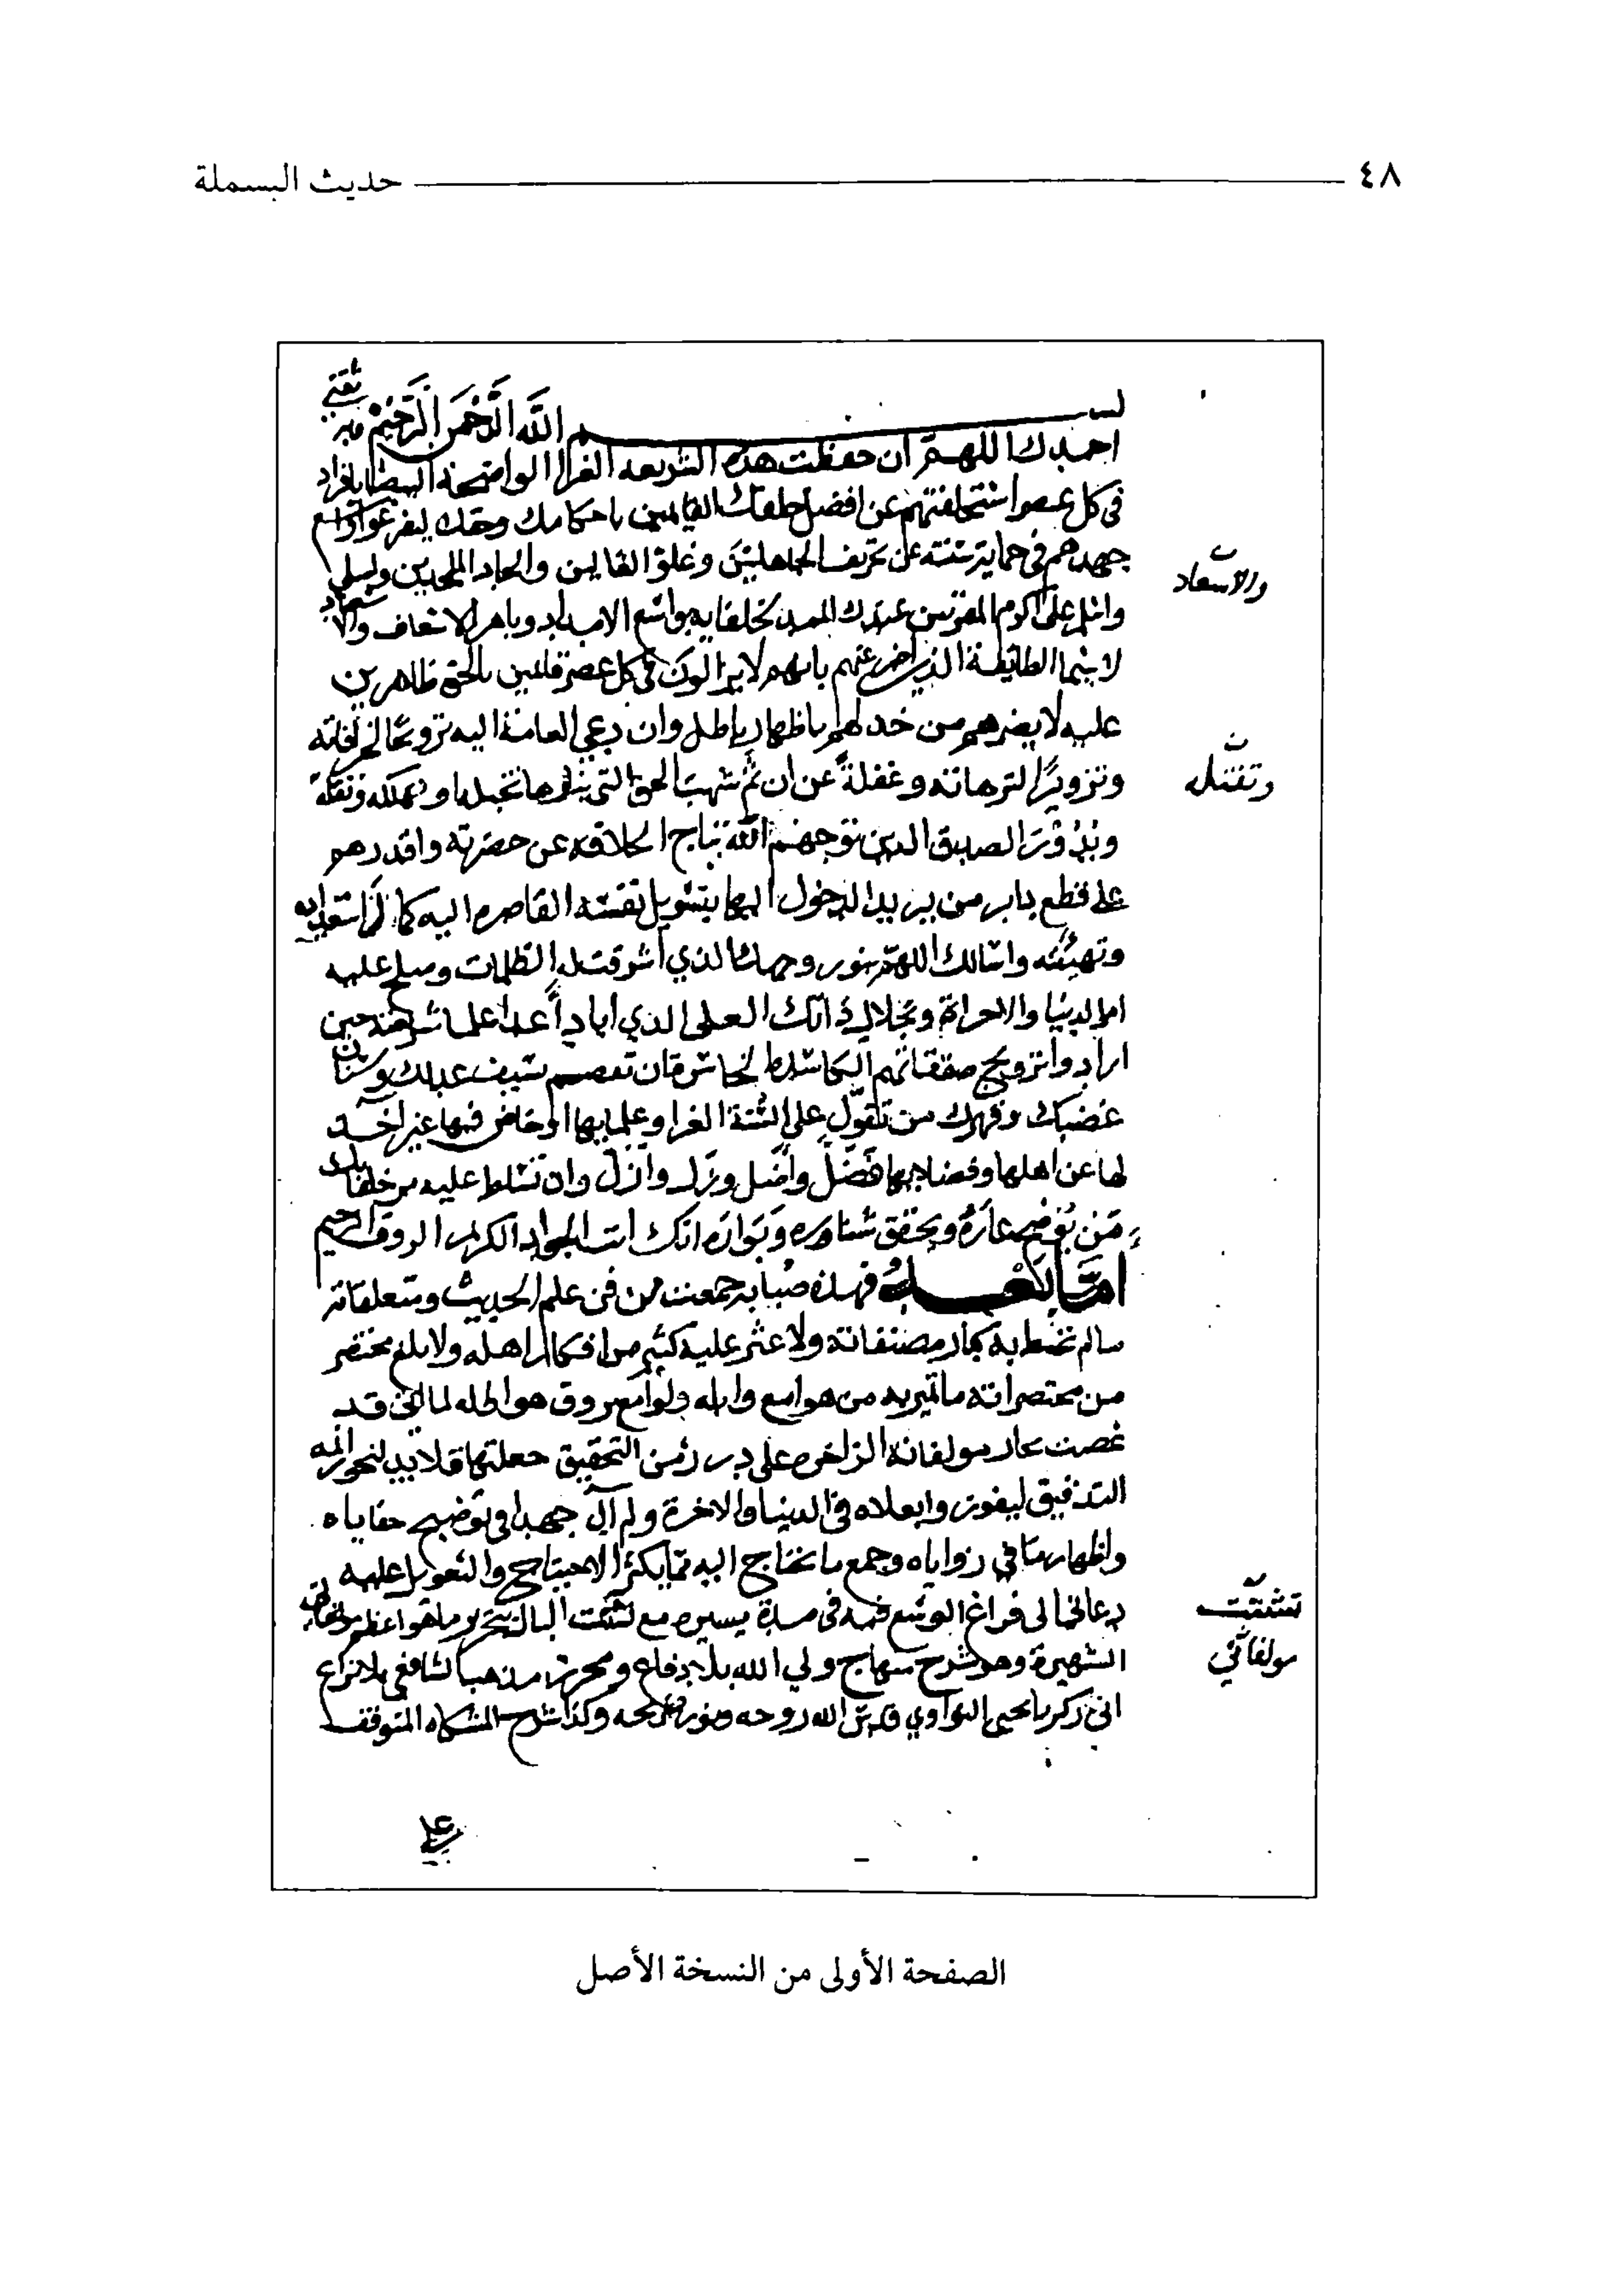 ٤٨ حديث البسملة
بسم الله الرحمن الرحيم وبه ثقتي
احمدك اللهم ان حفظت هذه الشريعه الغرا الواضحة البيضا بافراد
في كل عصر استخلفتهم عن افضل خلقك القايمين باحكامك وحقك ليفرغوا
جهدهم في حماية سنته عن تحريف الجاهلين وغلو الغالين والحاد الملحدين
على اكرم عبدك الممد لخلفايه بواسع الامداد وباهر الاسعاف
والاسعاد
لا سيما الطايفة الذين اخبر عنهم بانهم لا يزالون في كل عصر قايمين بالحق ظاهرين
عليه لا يضرهم من خذلهم باظهار باطل وان دعى العامة اليه ترويجا لخرافاته
وتزويرا لترهاته وغفلة عن ان ثم شهب الحق التي
وتقتله
الصديق الذين توجهم الله بتاج الخلافه عن حضرته واقدرهم
على قطع دابر من يريد الدخول اليها بتسويل نفسه القاصره اليه كمال استعداده
وتهيئته واسالك اللهم بنور وجهك الذي اشرقت له الظلمات وصلح عليه
امر الدنيا والاخرة وبجلال ذاتك العلى الذي اباد اعدا علما شريعته حين
ارادوا ترويج صفقاتهم الكاسده الخاسره ان تقصم بسيف عدلك وسنان
غضبك وقهرك من تقول على السنة الغرا وعلمايها او خاض فيها غير آخذ
لها عن اهلها وفضلايها فضل واضل وزل وازل وان تسلط عليه من خلفايك
من يوضح عاره ويحقق شناره وبواره انك انت الجواد الكريم الروف الرحيم
اما بعد فهذه صبابه جمعتها من فن علم الحديث ومتعلقاته
مالم تحط به كبار مصنفاته ولا عثر عليه كثير من افكار اهله ولا بلغ مختصر
من مختصراته من هوامع وابله ولوامع بروق هواطله لما اني قد
غصت بحار مولفاته الزاخره على درر من التحقيق جعلتها قلايد لنحور ايمه
التدقيق ليفوزوا بعلاه في الدنيا والاخرة ولم آل جهدا في توضيح خفاياه
واظهار ما في زواياه وجمع ما يحتاج اليه مما يكثر الاحتياج والتعويل عليه
دعاني الى فراغ الوسع فيه في مدة يسيره مع تشتت البال بتحرير ما هو اعظم
تشتت
مولفاتي
الشهيرة وهو شرح منهاج ولي الله بلا دفاع ومحرر مذهب الشافعي بلا نزاع
ابي زكريا يحيى النواوي قدس الله روحه ونور ضريحه وكذا شرح المشكاه المتوقف
على
الصفحة الأولى من النسخة الأصل